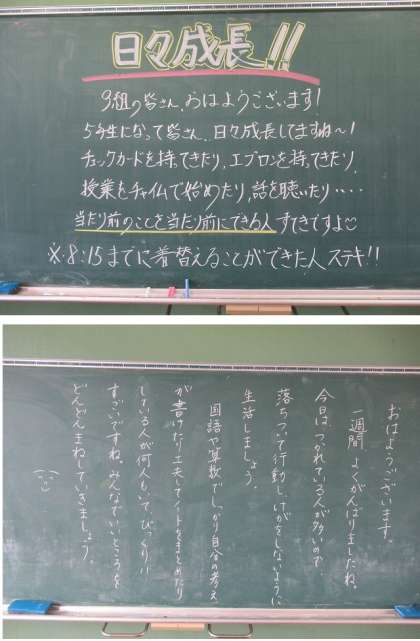 日々成長!!
3組の皆さん、おはようございます!
5年生になって皆さん、日々成長してますね〜!
チェックカードを持ってきたり、エプロンを持ってきたり、
授業をチャイムで始めたり、話を聴いたり‥‥
当たり前のことを当たり前にできる人すてきですよ
※8:15までに着替えることができた人ステキ!!
おはようございます。
一週間よくがんばりましたね。
今日はつかれている人が多いので、
落ちついて行動し、けがをしないように
生活しましょう。
国語や算数でしっかり自分の考え
が書けたり、工夫してノートをまとめたり
している人が何人もいてびっくり!!
すごいですね。みんなでいいところを
どんどんまねしていきましょう。